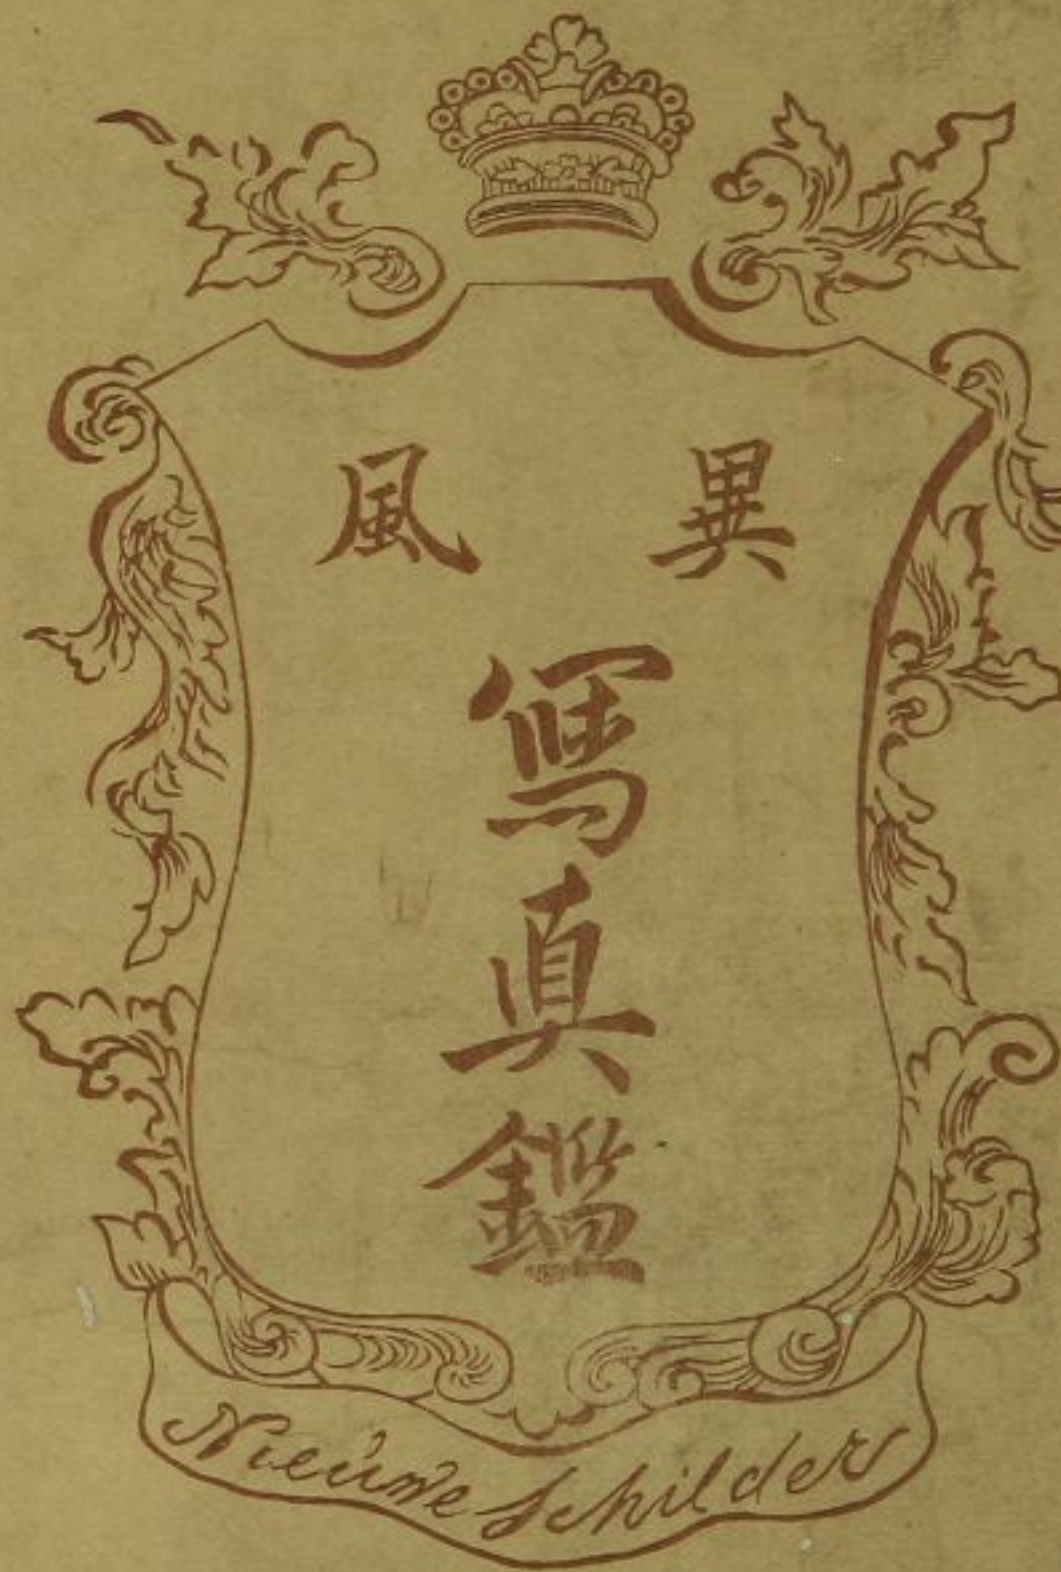 異風
寫真鑑
Nieuwe Schilder